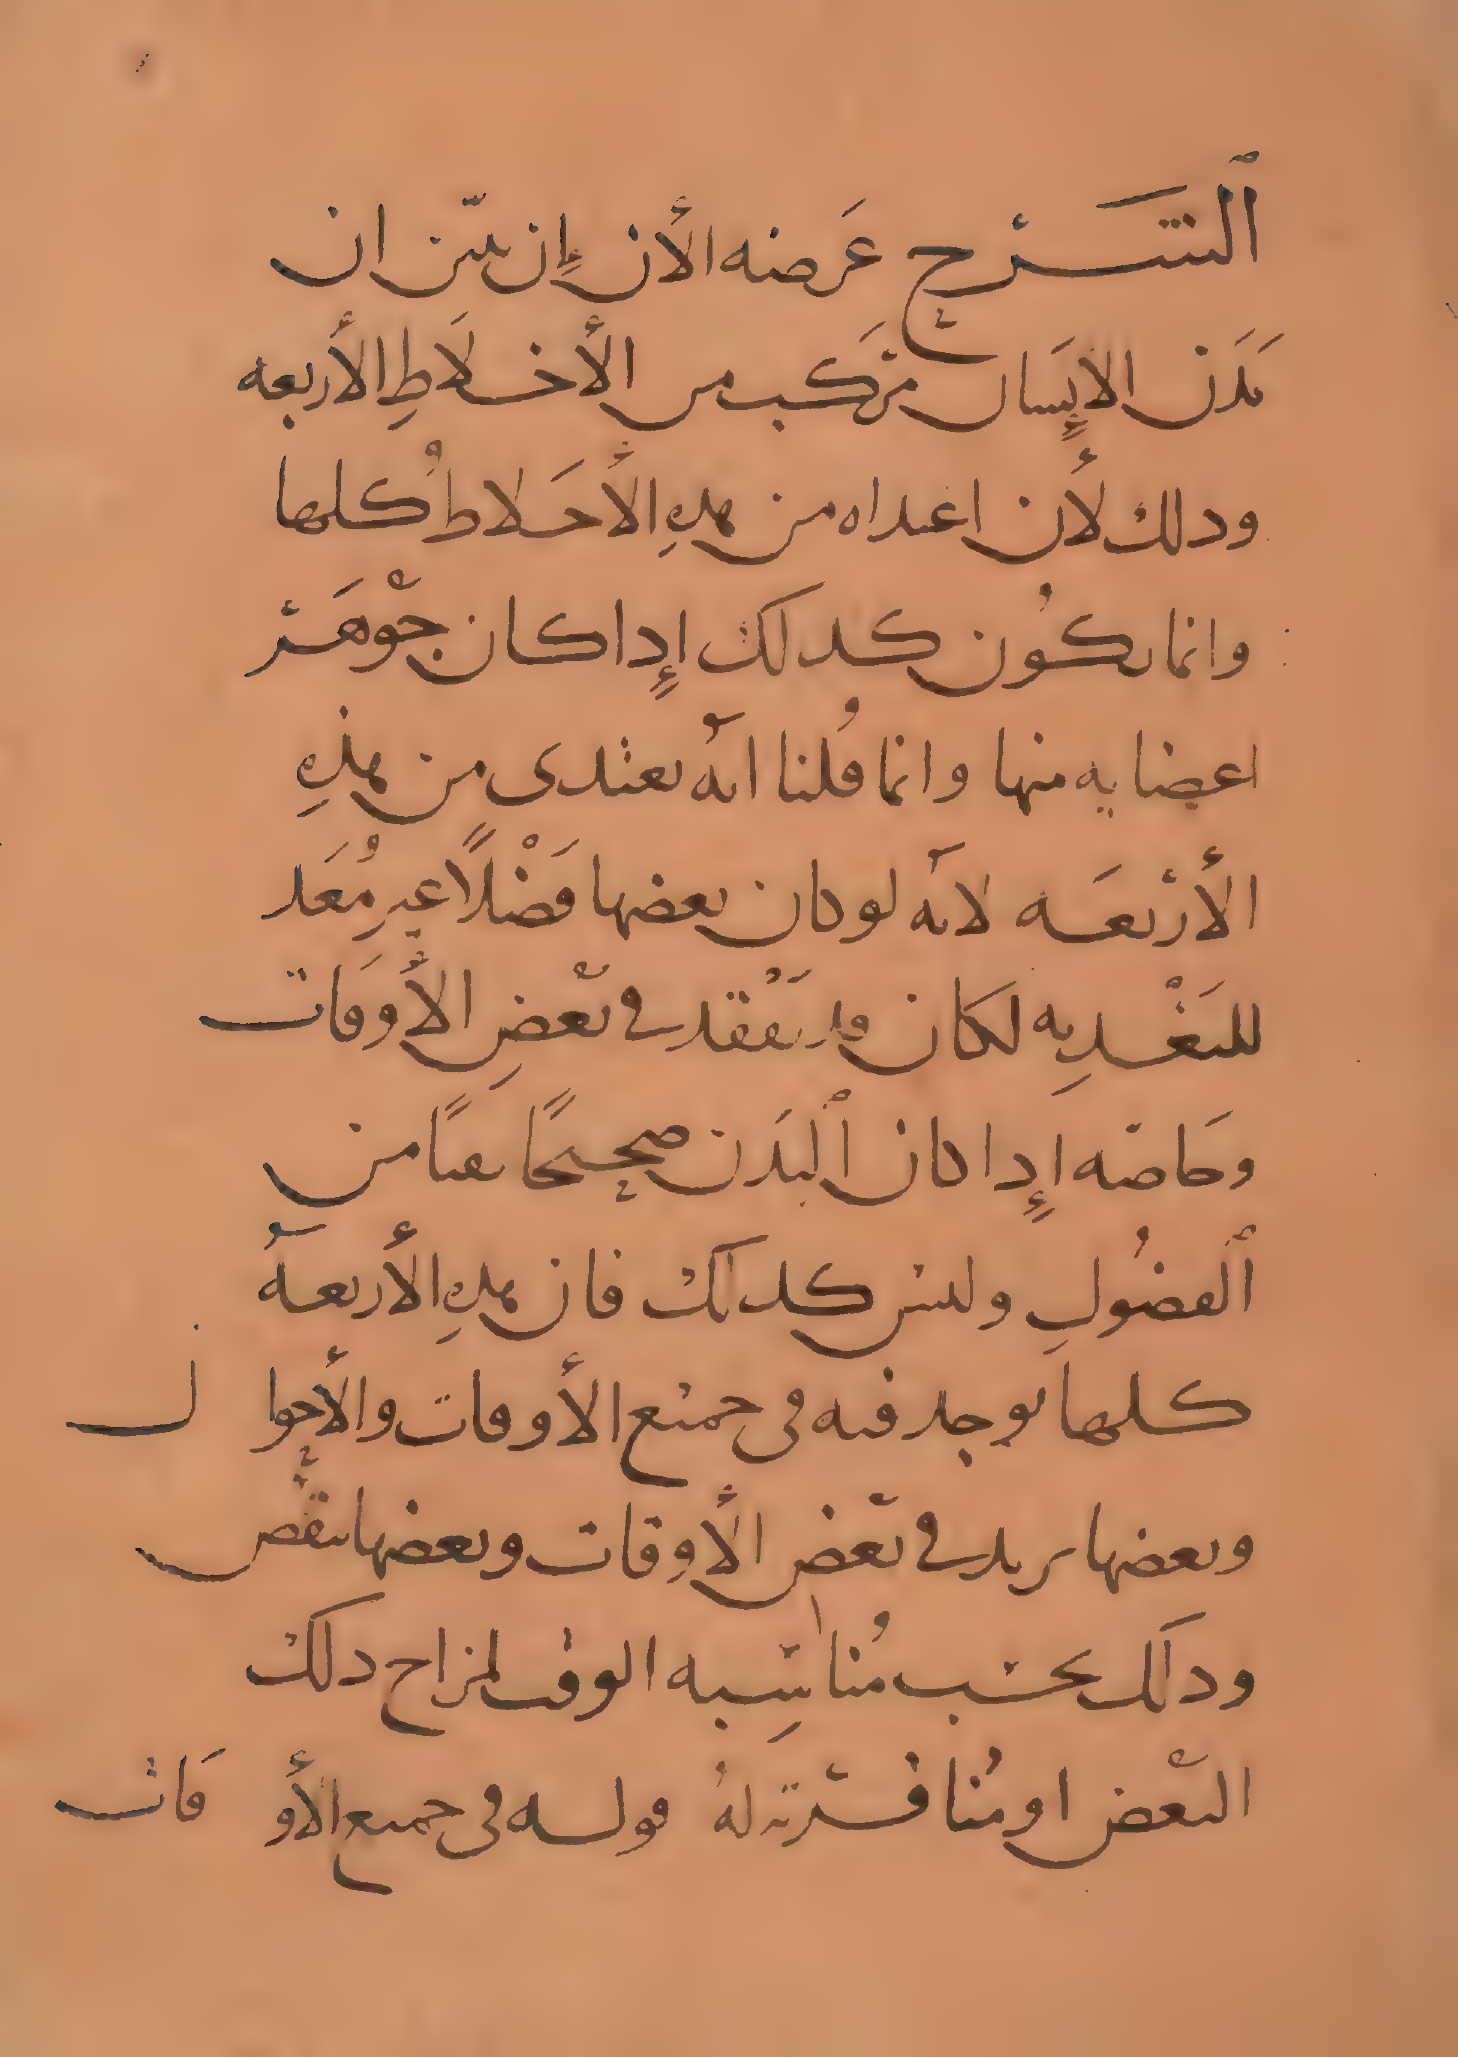 الشرح غرضه الأن إن يبين ان
بدن الإنسان مركب من الأخلاط الأربعه
وذلك لأن اغتداه من هذه الأخلاط كلها
وانما يكون كذلك إذا كان جوهر
اعضايه منها وانما قلنا انه يغتدى من هذه
الأربعه لانه لو كان بعضها فضلًا غير مُعد
للتغذيه لكان قد يفقد في بعض الأوقات
وخاصه إذا كان البدن صحيحًا نقيًا من
الفضول وليس كذلك فان هذه الأربعة
كلها يوجد فيه في جميع الأوقات والأحوال
وبعضها يزيد في بعض الأوقات وبعضها ينقص
وذلك بحسب مُناسبه الوقت لمزاج ذلك
البعض او مُنافرته لهُ قوله في جميع الأوقات